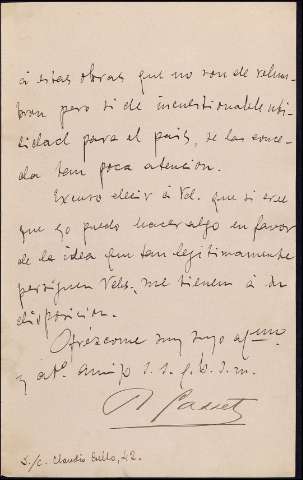 á estas obras que no son de relum-
bron pero si de incuestionable uti-
lidad para el pais, se las conce-
da tan poca atencion.
Excuso decir á Vd. que si cree
que yo puedo hacer algo en favor
de la idea que tan legitimamente
persiguen Vdes, me tienen á su
disposicion.
Ofrézcome muy suyo afmo
y atto amigo s. s. q. b. s. m.
R Gasset
S./C. Claudio Coello, 42.